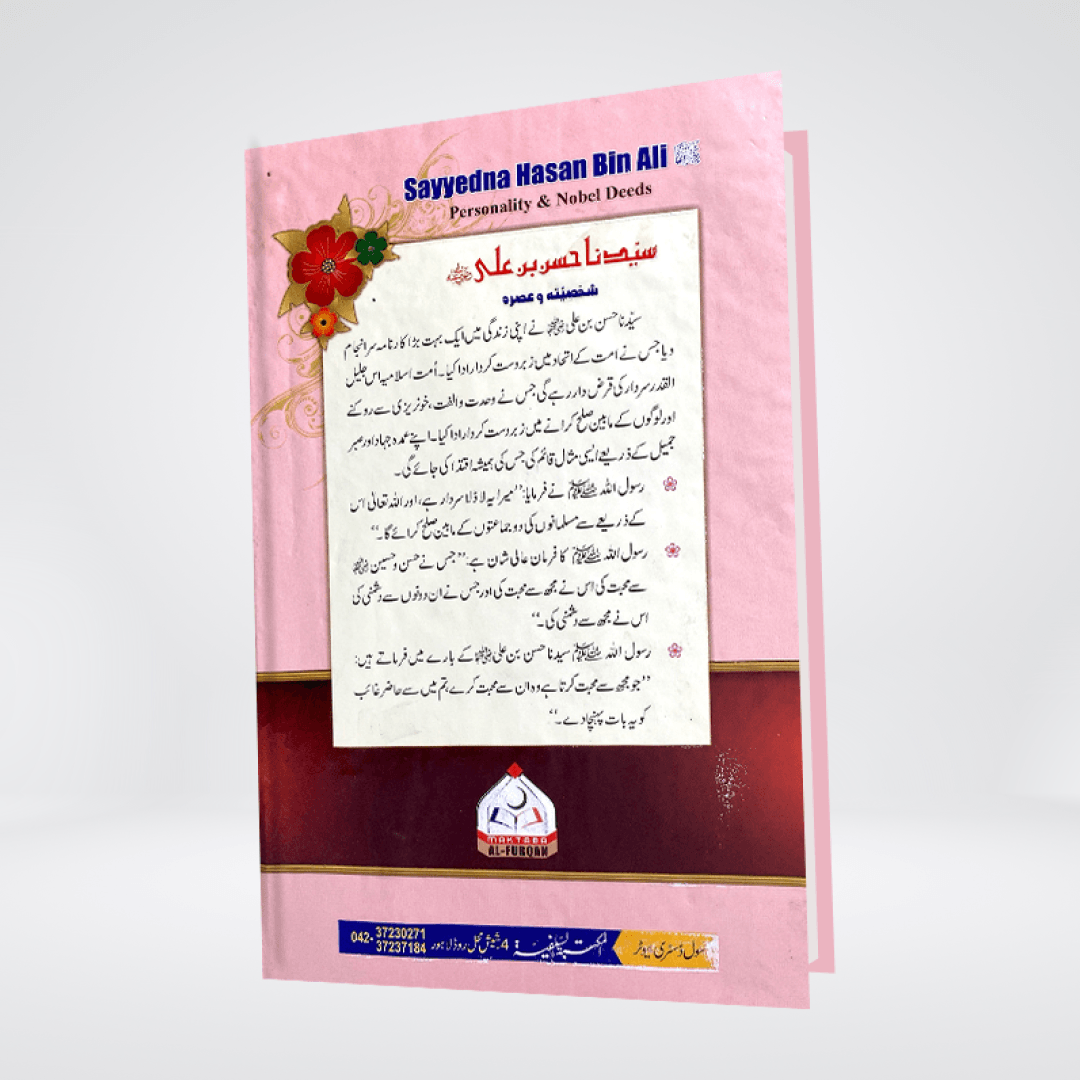 Sayyedna Hasan Bin Ali
Personality & Nobel Deeds
سیّدنا حسن بن علی رضی اللہ عنہ
شخصیّته و عصره
سیّدنا حسن بن علی رضی اللہ عنہما نے اپنی زندگی میں ایک بہت بڑا کارنامہ سرانجام
دیا جس نے امت کے اتحاد میں زبردست کردار ادا کیا۔ اُمت اسلامیہ اس جلیل
القدر سردار کی قرض دار رہے گی جس نے وحدت والفت، خونریزی سے روکنے
اور لوگوں کے مابین صلح کرانے میں زبردست کردار ادا کیا۔ اپنے عمدہ جہاد اور صبر
جمیل کے ذریعے ایسی مثال قائم کی جس کی ہمیشہ اقتدا کی جائے گی۔
رسول اللہ ﷺ نے فرمایا: ’’میرا یہ لاڈلا سردار ہے، اور اللہ تعالیٰ اس
کے ذریعے سے مسلمانوں کی دو جماعتوں کے مابین صلح کرائے گا۔‘‘
رسول اللہ ﷺ کا فرمان عالی شان ہے: ’’جس نے حسن و حسین رضی اللہ عنہما
سے محبت کی اس نے مجھ سے محبت کی اور جس نے ان دونوں سے دشمنی کی
اس نے مجھ سے دشمنی کی۔‘‘
رسول اللہ ﷺ سیدنا حسن بن علی رضی اللہ عنہما کے بارے میں فرماتے ہیں:
’’جو مجھ سے محبت کرتا ہے وہ ان سے محبت کرے، تم میں سے حاضر غائب
کو یہ بات پہنچا دے۔‘‘
MAKTABA
AL-FURQAN
سول ڈسٹری بیوٹر المکتبۃ السلفیۃ: 4 شیش محل روڈ لاہور 042-37230271
37237184